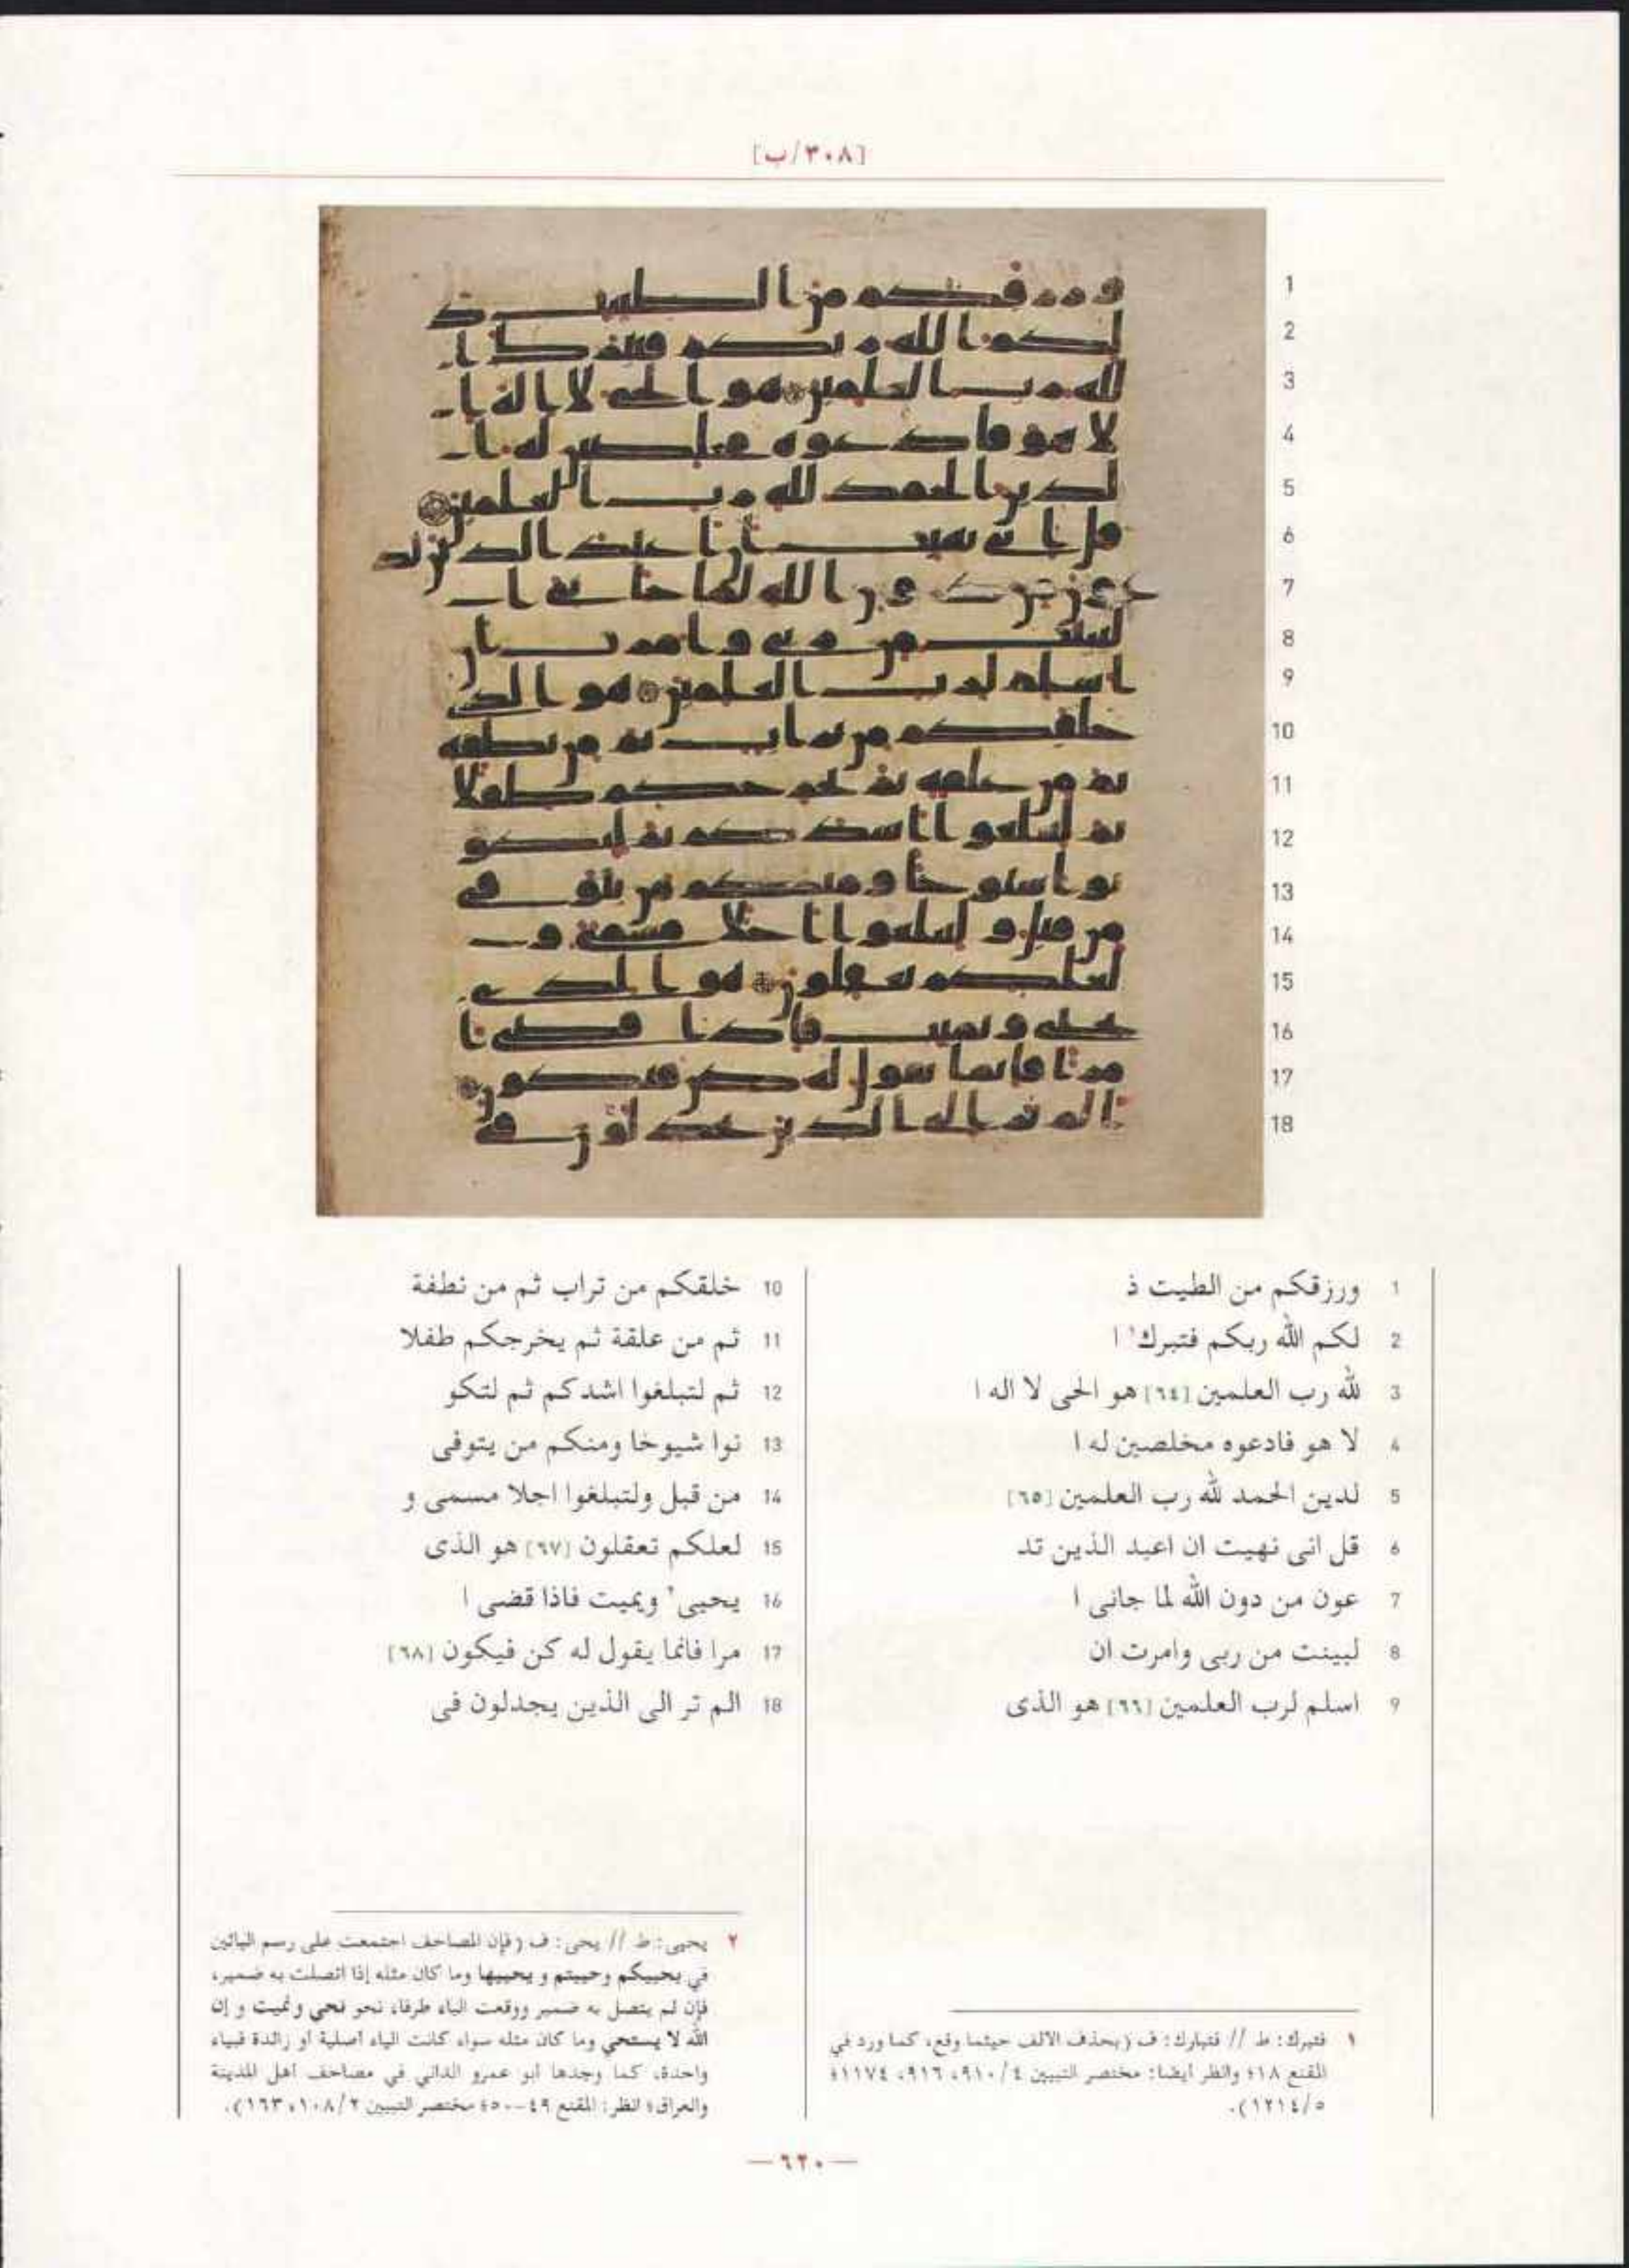 [٣٠٨/ب]
1 ورزقكم من الطيبت ذ
2 لكم الله ربكم فتبرك١ ا
3 لله رب العلمين [٦٤] هو الحى لا اله ا
4 لا هو فادعوه مخلصين له ا
5 لدين الحمد لله رب العلمين [٦٥]
6 قل انى نهيت ان اعبد الذين تد
7 عون من دون الله لما جانى ا
8 لبينت من ربى وامرت ان
9 اسلم لرب العلمين [٦٦] هو الذى
10 خلقكم من تراب ثم من نطفة
11 ثم من علقة ثم يخرجكم طفلا
12 ثم لتبلغوا اشدكم ثم لتكو
13 نوا شيوخا ومنكم من يتوفى
14 من قبل ولتبلغوا اجلا مسمى و
15 لعلكم تعقلون [٦٧] هو الذى
16 يحيى٢ ويميت فاذا قضى ا
17 مرا فانما يقول له كن فيكون [٦٨]
18 الم تر الى الذين يجدلون فى
١ فتبرك: ط // فتبارك: ف (بحذف الالف حيثما وقع، كما ورد في
المقنع ١٨؛ وانظر أيضا: مختصر التبيين ٤/٩١٠، ٩١٦، ١١٧٤؛
٥/١٢١٤).
٢ يحيى: ط // يحى: ف (فإن المصاحف اجتمعت على رسم اليائين
في يحييكم وحييتم و يحييها وما كان مثله إذا اتصلت به ضمير،
فإن لم يتصل به ضمير ووقعت الياء طرفا، نحو نحي ونميت و إن
الله لا يستحي وما كان مثله سواء كانت الياء أصلية أو زائدة فبياء
واحدة، كما وجدها أبو عمرو الداني في مصاحف أهل المدينة
والعراق؛ انظر: المقنع ٤٩-٥٠؛ مختصر التبيين ٢/١٠٨، ١٦٣).
—٦٢٠—